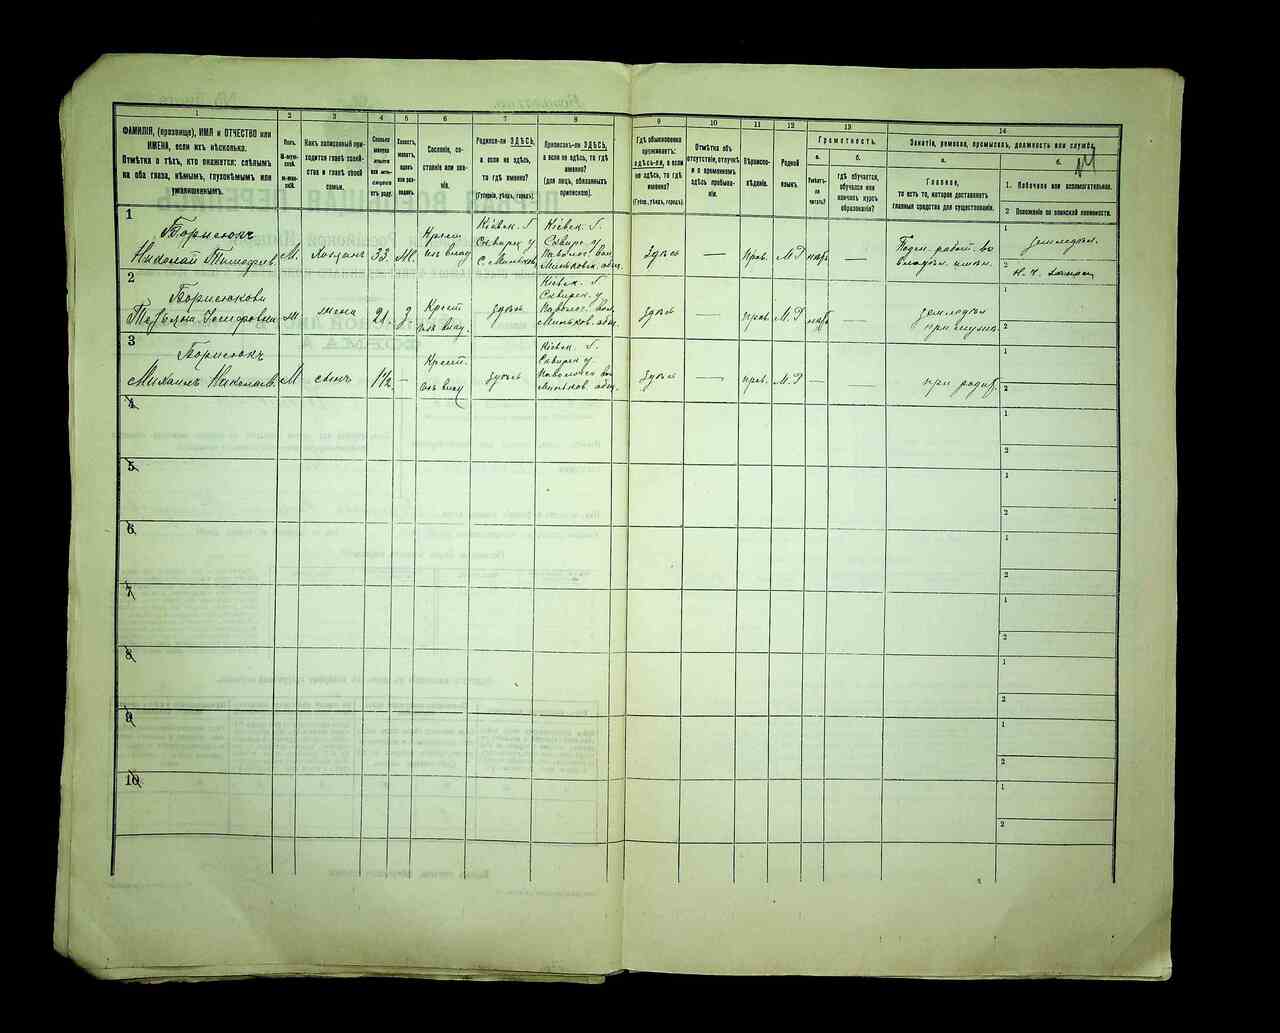 1
2
3
4
5
6
7
8
9
10
11
12
13
14
ФАМИЛІЯ, (прозвище), ИМЯ и ОТЧЕСТВО или
ИМЕНА, если ихъ нѣсколько.
Отмѣтка о тѣхъ, кто окажется: слѣпымъ
на оба глаза, нѣмымъ, глухонѣмымъ или
умалишеннымъ.
Полъ.
Какъ записанный при-
ходится главѣ хозяй-
ства и главѣ своей
семьи.
Сословіе, со-
стояніе или зва-
ніе.
Родился-ли ЗДѢСЬ,
а если не здѣсь,
то гдѣ именно?
(Губернія, уѣздъ, городъ).
Приписанъ-ли ЗДѢСЬ,
а если не здѣсь, то гдѣ
именно?
(для лицъ, обязанныхъ
припискою).
Гдѣ обыкновенно
проживаетъ:
здѣсь-ли, а если
не здѣсь, то гдѣ
именно?
(Губерн., уѣздъ, городъ).
Отмѣтка объ
отсутствіи, отлучкѣ
и о временномъ
здѣсь пребыва-
ніи.
Вѣроиспо-
вѣданіе.
Родной
языкъ.
Грамотность.
а.
Умѣетъ-
ли
читать?
б.
гдѣ обучается,
обучался или
кончилъ курсъ
образованія?
Занятіе, ремесло, промыселъ, должность или служба.
а.
Главное,
то есть то, которое доставляетъ
главныя средства для существованія.
б.
1. Побочное или вспомогательное.
2 Положеніе по воинской повинности.
1
Борисюкъ
Николай Тимофѣев.
М.
хозяинъ
33
Ж.
Крест
изъ влад
Кіевск. Г.
Сквирск у
С. Миньков.
Кіевск. Г.
Сквирс. у
Паволоч. вол
Миньковск. общ.
Здѣсь
—
Прав.
М.Р
—
Подн. работ. во
владѣл. имѣн.
1
земледѣл.
2
2
Борисюкова
Татьяна Іосифовна
ж
жена
21.
З.
Крест
изъ влад.
здѣсь
Кіевск. Г
Сквирск. у.
Паволоч. вол.
Миньков. общ.
Здѣсь
—
прав.
М.Р
земледѣл
при мужѣ
1
2
3
Борисюкъ
Михаилъ Николаев.
М
сынъ
1 1/2
—
Крест.
изъ влад
здѣсь
Кіевск. Г.
Сквирск у.
Паволоческ вол
Миньков. общ.
Здѣсь
—
прав.
М.Р
—
при родит.
1
2
4
1
2
5
1
2
6
1
2
7
1
2
8
1
2
9
1
2
10
1
2